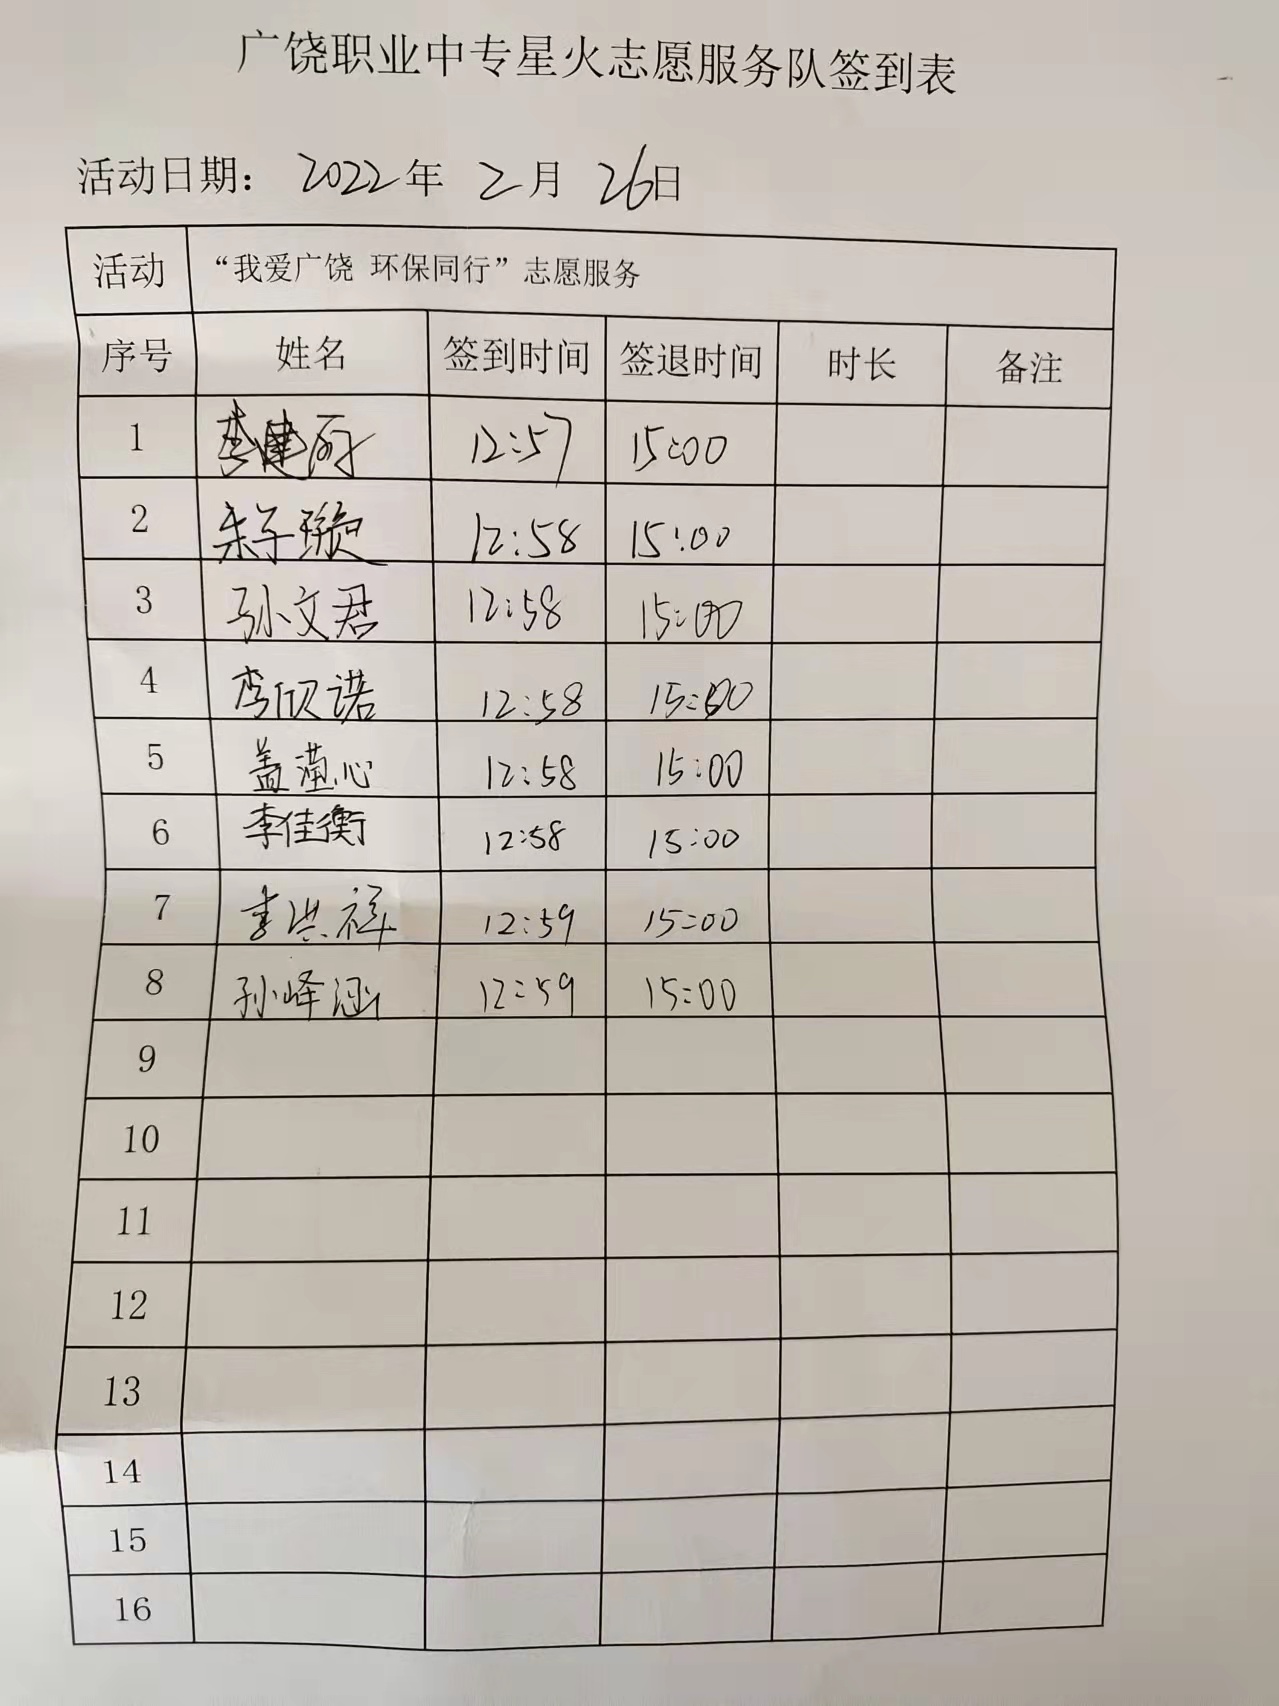 广饶职业中专星火志愿服务队签到表
活动日期： 2022年 2月 26日
活动 “我爱广饶 环保同行”志愿服务
序号 姓名 签到时间 签退时间 时长 备注
1 李建丽 12:57 15:00
2 朱子璇 12:58 15:00
3 孙文君 12:58 15:00
4 李欣诺 12:58 15:00
5 盖 心 12:58 15:00
6 李佳衡 12:58 15:00
7 李洪祥 12:59 15:00
8 孙峰涵 12:59 15:00
9
10
11
12
13
14
15
16